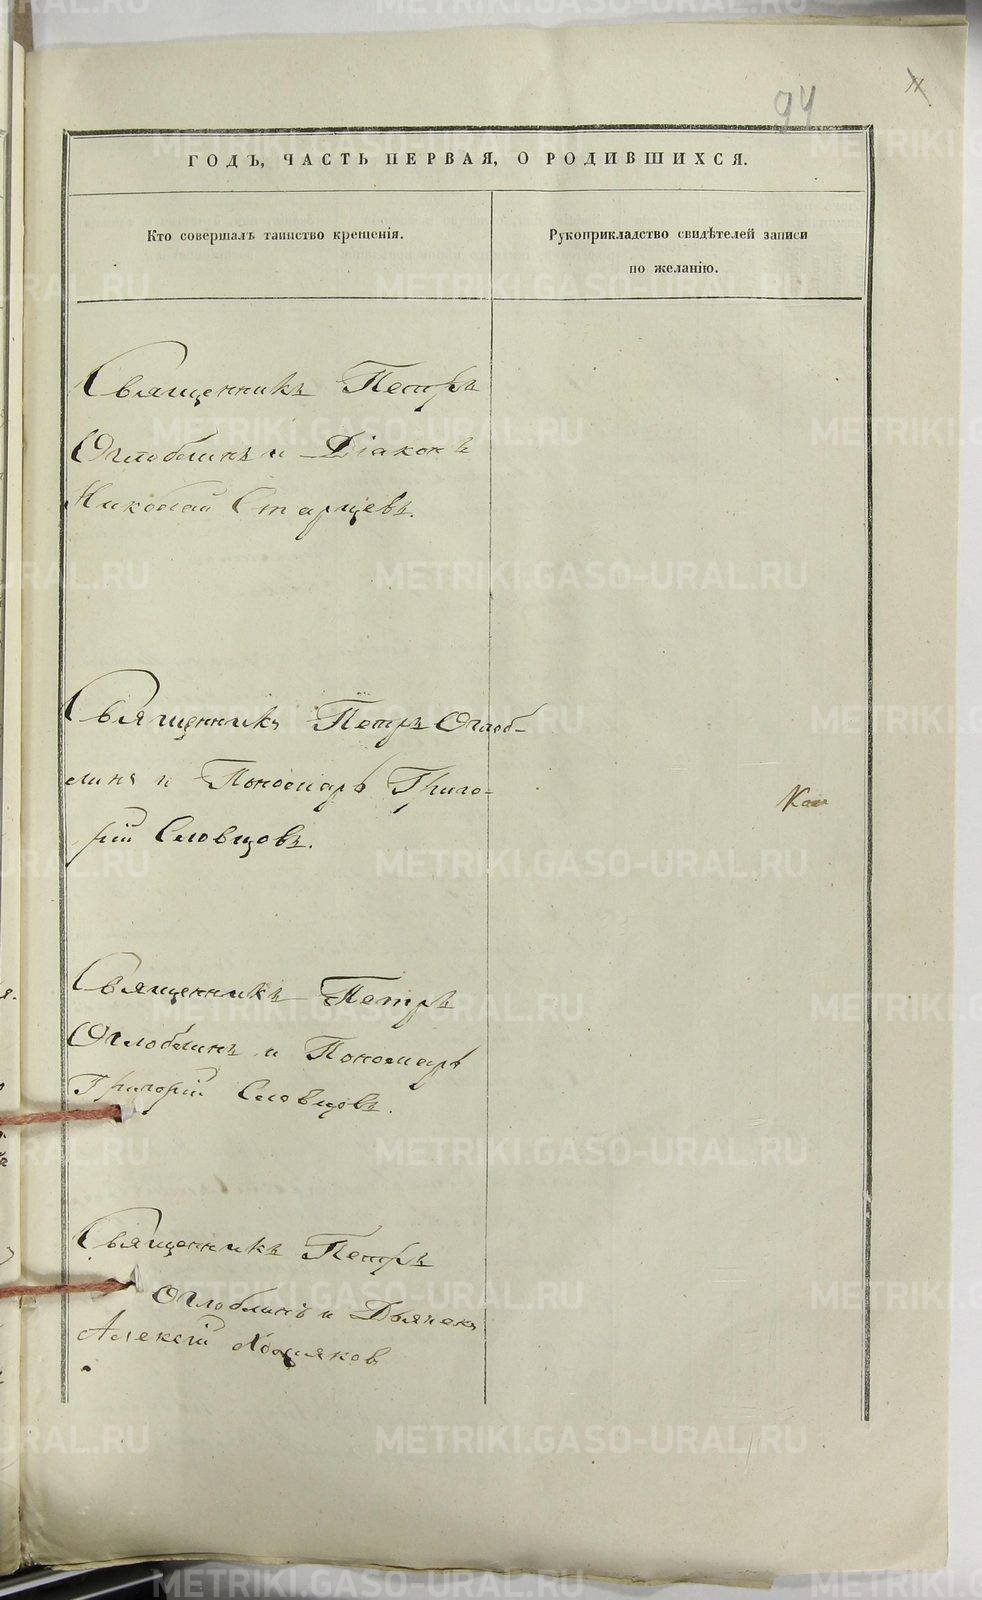 94
ГОДЪ, ЧАСТЬ ПЕРВАЯ, О РОДИВШИХСЯ.
Кто совершалъ таинство крещенія.
Рукоприкладство свидѣтелей записи
по желанію.
Священникъ Петръ
Оглоблинъ и Діаконъ
Николай Старцевъ.
Священникъ Петръ Оглоб-
линъ и Пономарь Григо-
рій Словцовъ.
Священникъ Петръ
Оглоблинъ и Пономарь
Григорій Словцовъ.
Священникъ Петръ
Оглоблинъ и Дьячекъ
Алексій
METRIKI.GASO-URAL.RU